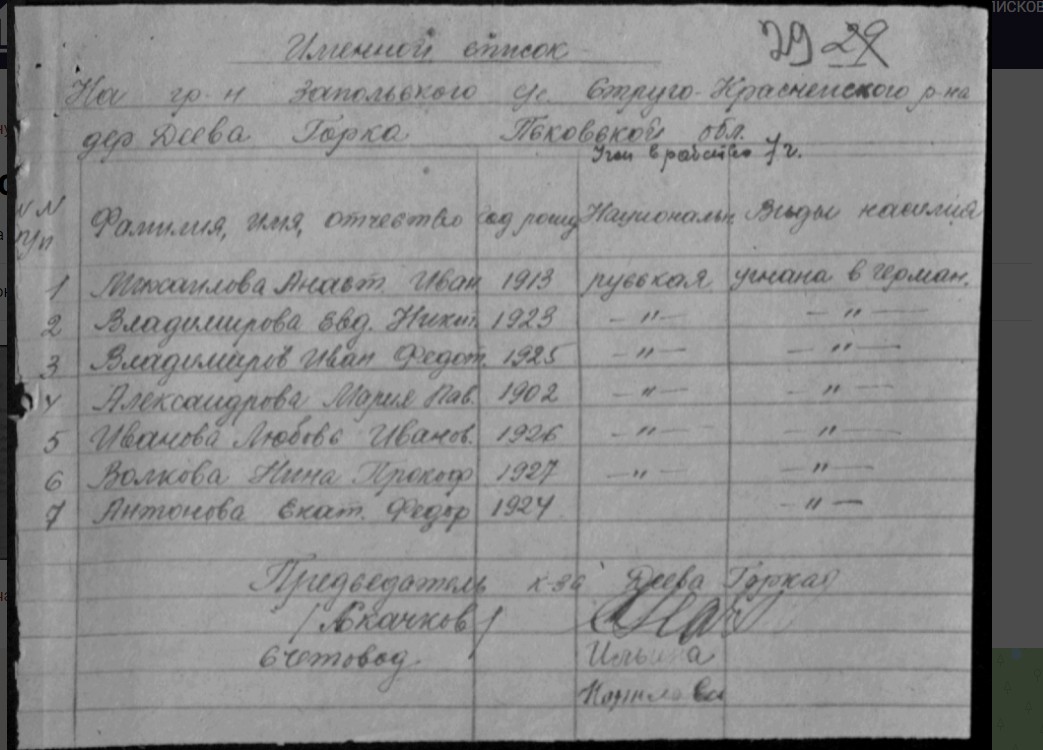 29 29
Именной список
На гр-н Запольского с/с. Струго-Красненского р-на
дер Деева Горка Псковской обл.
Угон в рабство 7 ч.
NN п/п Фамилия, имя, отчество Год рожд Националь Виды насилия
1 Михаилова Анаст. Иван 1913 русская угнана в герман.
2 Владимирова Евд. Никит. 1923 —"— —"—
3 Владимиров Иван Федот. 1925 —"— —"—
4 Александрова Мария Пав. 1902 —"— —"—
5 Иванова Любовь Иванов. 1926 —"— —"—
6 Волкова Нина Прокоф 1927 —"— —"—
7 Антонова Екат. Федор 1924 —"—
Председатель к-за "Деева Горка"
/Скачков/
Счетовод Ильина